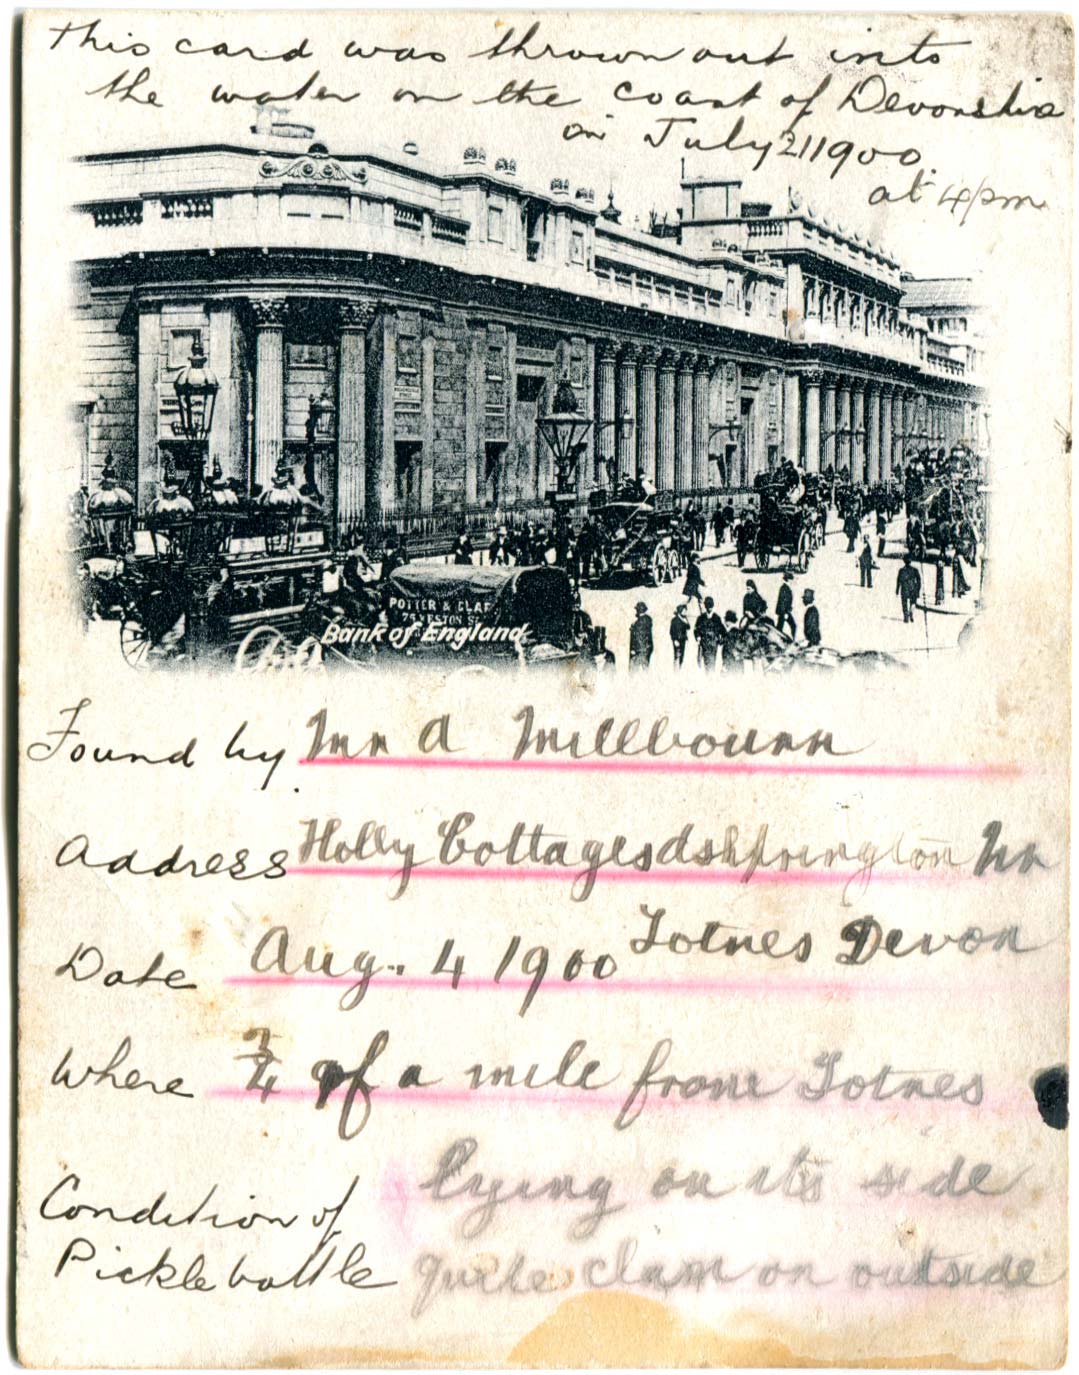 This card was thrown out into
the water on the coast of Devonshire
on July 21 1900
at 4 pm
POTTER & CLAR
Bank of England
Found by Mr A Millbourn
Address Holly Cottages Nr
Totnes Devon
Date Aug. 4 1900
Where 3/4 of a mile from Totnes
Condition of lying on its side
Pickle bottle quite clean on outside